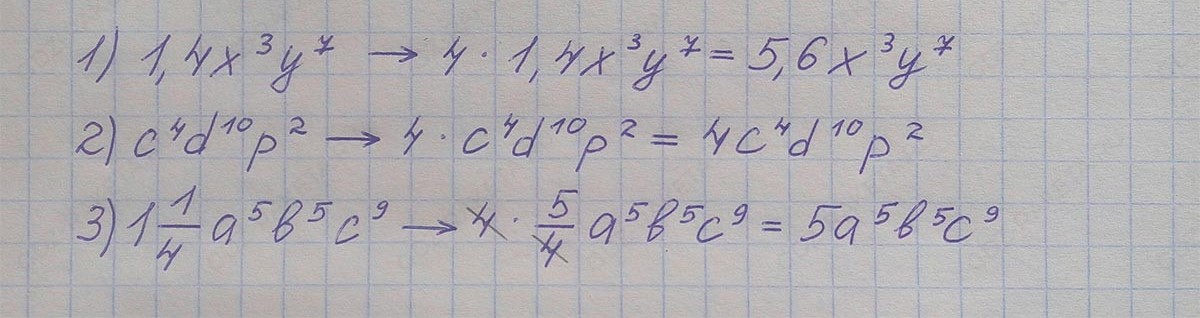 1) 1,4x³y⁷ → 4 · 1,4x³y⁷ = 5,6x³y⁷
2) c⁴d¹⁰p² → 4 · c⁴d¹⁰p² = 4c⁴d¹⁰p²
3) 1 1/4 a⁵b⁵c⁹ → 4 · 5/4 a⁵b⁵c⁹ = 5a⁵b⁵c⁹